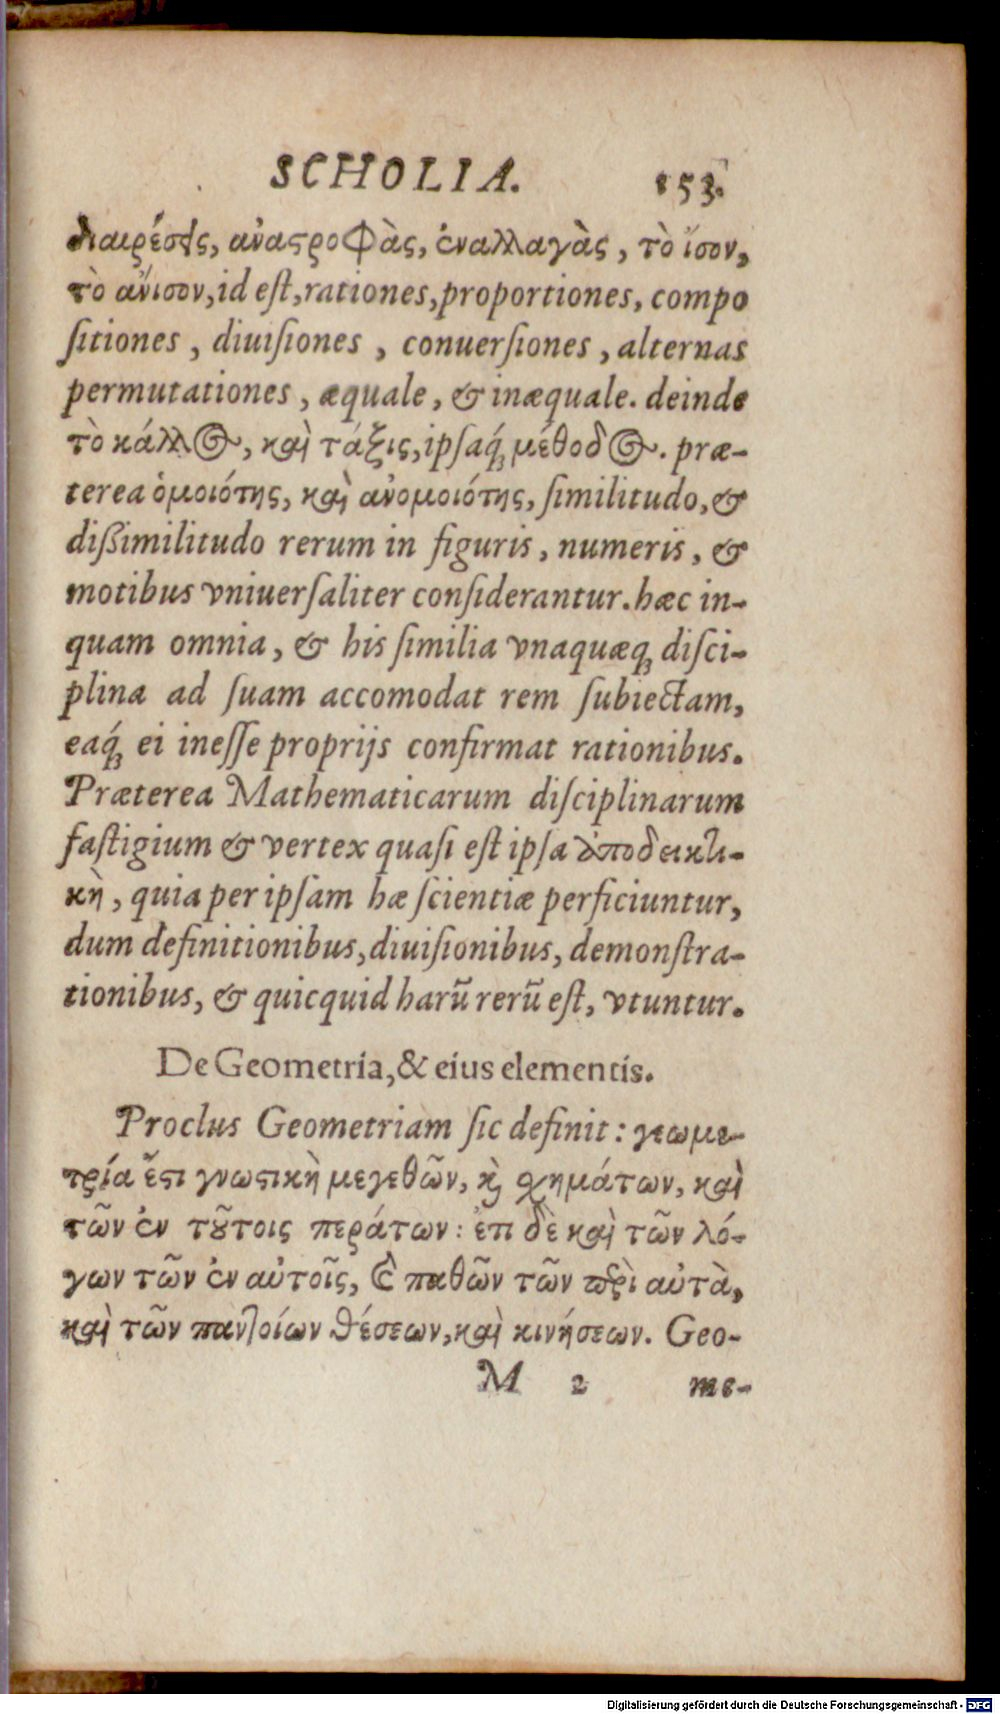 SCHOLIA. 153.
διαιρέσεις, ἀναστροφὰς, ἐναλλαγὰς, τὸ ἴσον,
τὸ ἄνισον, id eſt, rationes, proportiones, compo
ſitiones, diuiſiones, conuerſiones, alternas
permutationes, æquale, & inæquale. deinde
τὸ κάλλος, καὶ τάξις, ipſaq́; μέθοδος. præ-
terea ὁμοιότης, καὶ ἀνομοιότης, ſimilitudo, &
dißimilitudo rerum in figuris, numeris, &
motibus vniuerſaliter conſiderantur. hæc in-
quam omnia, & his ſimilia vnaquæq; diſci-
plina ad ſuam accomodat rem ſubiectam,
eaq́; ei ineſſe proprijs confirmat rationibus.
Præterea Mathematicarum diſciplinarum
faſtigium & vertex quaſi eſt ipſa ἀποδεικτι-
κὴ, quia per ipſam hæ ſcientiæ perficiuntur,
dum definitionibus, diuiſionibus, demonſtra-
tionibus, & quicquid harũ rerũ eſt, vtuntur.
De Geometria, & eius elementis.
Proclus Geometriam ſic definit: γεωμε-
τρία ἔστι γνωστικὴ μεγεθῶν, καὶ σχημάτων, καὶ
τῶν ἐν τούτοις περάτων: ἔτι δὲ καὶ τῶν λό-
γων τῶν ἐν αὐτοῖς, καὶ παθῶν τῶν περὶ αὐτὰ,
καὶ τῶν παντοίων θέσεων, καὶ κινήσεων. Geo-
M 2 me-
Digitalisierung gefördert durch die Deutsche Forschungsgemeinschaft - DFG